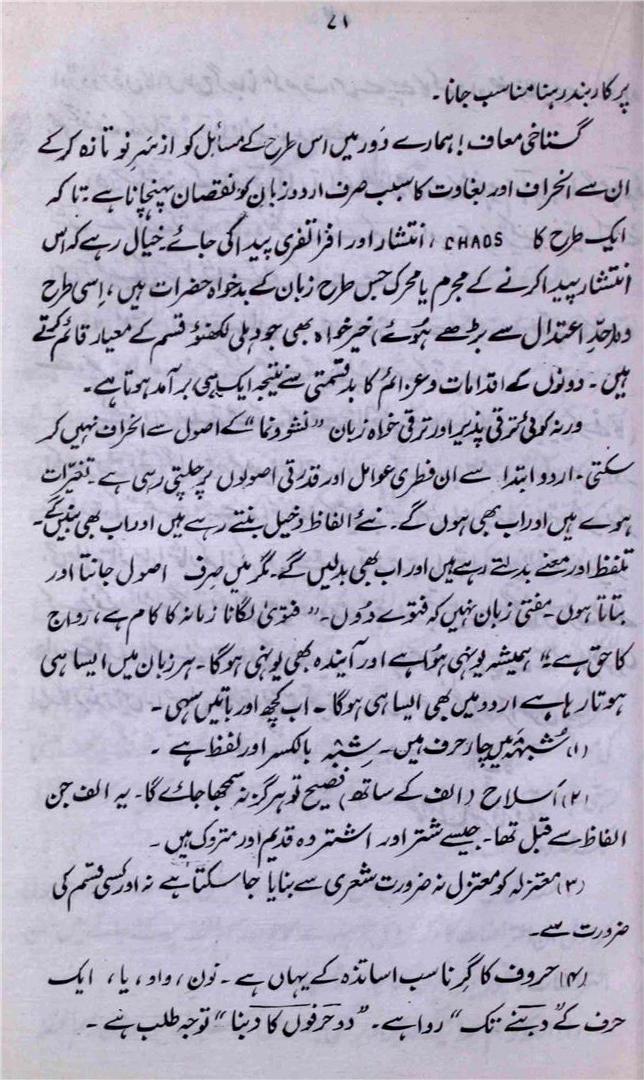 ۷۱
پر کاربند رہنا مناسب جانا۔
گستاخی معاف! ہمارے دَور میں اس طرح کے مسائل کو از سرِ نو تازہ کر کے
ان سے انحراف اور بغاوت کا سبب صرف اردو زبان کو نقصان پہنچانا ہے۔ تا کہ
ایک طرح کا CHAOS، انتشار اور افراتفری پیدا کی جائے۔ خیال رہے کہ اس
انتشار پیدا کرنے کے مجرم یا محرک جس طرح زبان کے بدخواہ حضرات ہیں، اِسی طرح
وہ (حدِّ اعتدال سے بڑھے ہوئے) خیر خواہ بھی جو دہلی لکھنؤ قسم کے معیار قائم کرتے
ہیں۔ دونوں کے اقدامات و عزائم کا بدقسمتی سے نتیجہ ایک ہی برآمد ہوتا ہے۔
ورنہ کوئی ترقی پذیر اور ترقی خواہ زبان "نشوونما" کے اصول سے انحراف نہیں کر
سکتی۔ اردو ابتدا سے ان فطری عوامل اور قدرتی اصولوں پر چلتی رہی ہے۔ تغیرّات
ہوے ہیں اور اب بھی ہوں گے۔ نئے الفاظ دخیل بنتے رہے ہیں اور اب بھی بنیں گے۔
تلفظ اور معنے بدلتے رہے ہیں اور اب بھی بدلیں گے۔ مگر میں صِرف اصول جانتا اور
بتاتا ہوں۔ مفتی زبان نہیں کہ فتوے دوں۔ "فتویٰ لگانا زمانہ کا کام ہے، رواج
کا حق ہے۔" ہمیشہ یونہی ہُوا ہے اور آیندہ بھی یونہی ہوگا۔ ہر زبان میں ایسا ہی
ہوتا رہا ہے اردو میں بھی ایسا ہی ہوگا۔ اب کچھ اور باتیں سہی۔
(۱) شُبہَہ میں چار حرف ہیں۔ شِبْہ بالکسر اور لفظ ہے۔
(۲) اَسلاح (الف کے ساتھ) فصیح تو ہرگز نہ سمجھا جائے گا۔ یہ الف جن
الفاظ سے قبل تھا۔ جیسے شتر اور اشتر وہ قدیم اور متروک ہیں۔
(۳) معتزلہ کو معتزل نہ ضرورت شعری سے بنایا جا سکتا ہے نہ اور کسی قسم کی
ضرورت سے۔
(۴) حروف کا گِرنا سب اساتذہ کے یہاں ہے۔ نون، واو، یا، ایک
حرف کے "دبنے تک" روا ہے۔ "دو حرفوں کا دبنا" توجہ طلب ہے۔